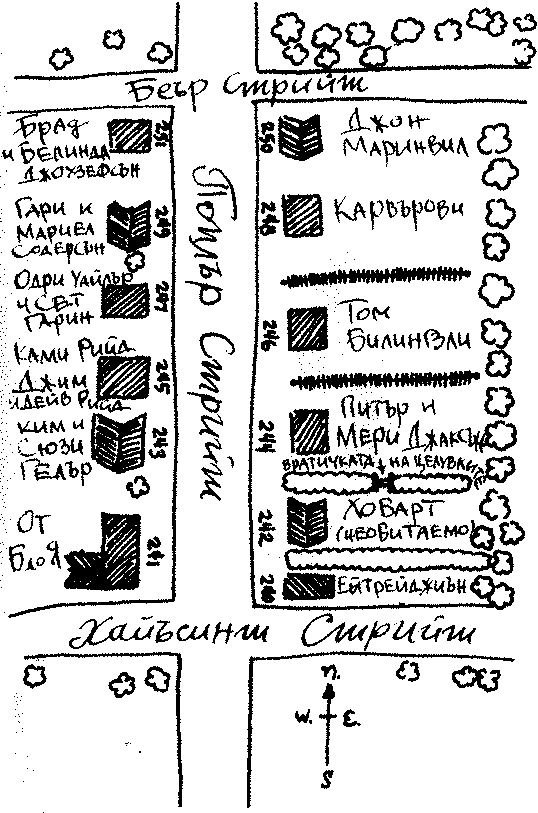 Беър Стрийт
251
Брад
и Белинда
Джоузефсън
249
Гари и
Мариел
Содерсън
247
Одри Уайлър
и Сет
Гарин
245
Ками Рийд
Джим
и Дейв Рийд
243
Ким и
Сюзи
Гелър
241
От
Бло Я
Поплър Стрийт
250
Джон
Маринвил
248
Карвърови
246
Том
Билингзли
244
Питър и
Мери Джаксън
Вратичката на целувките
242
Ховарт
(необитаемо)
240
Ентрейджиън
Хайъсинт Стрийт
n.
w. E.
S